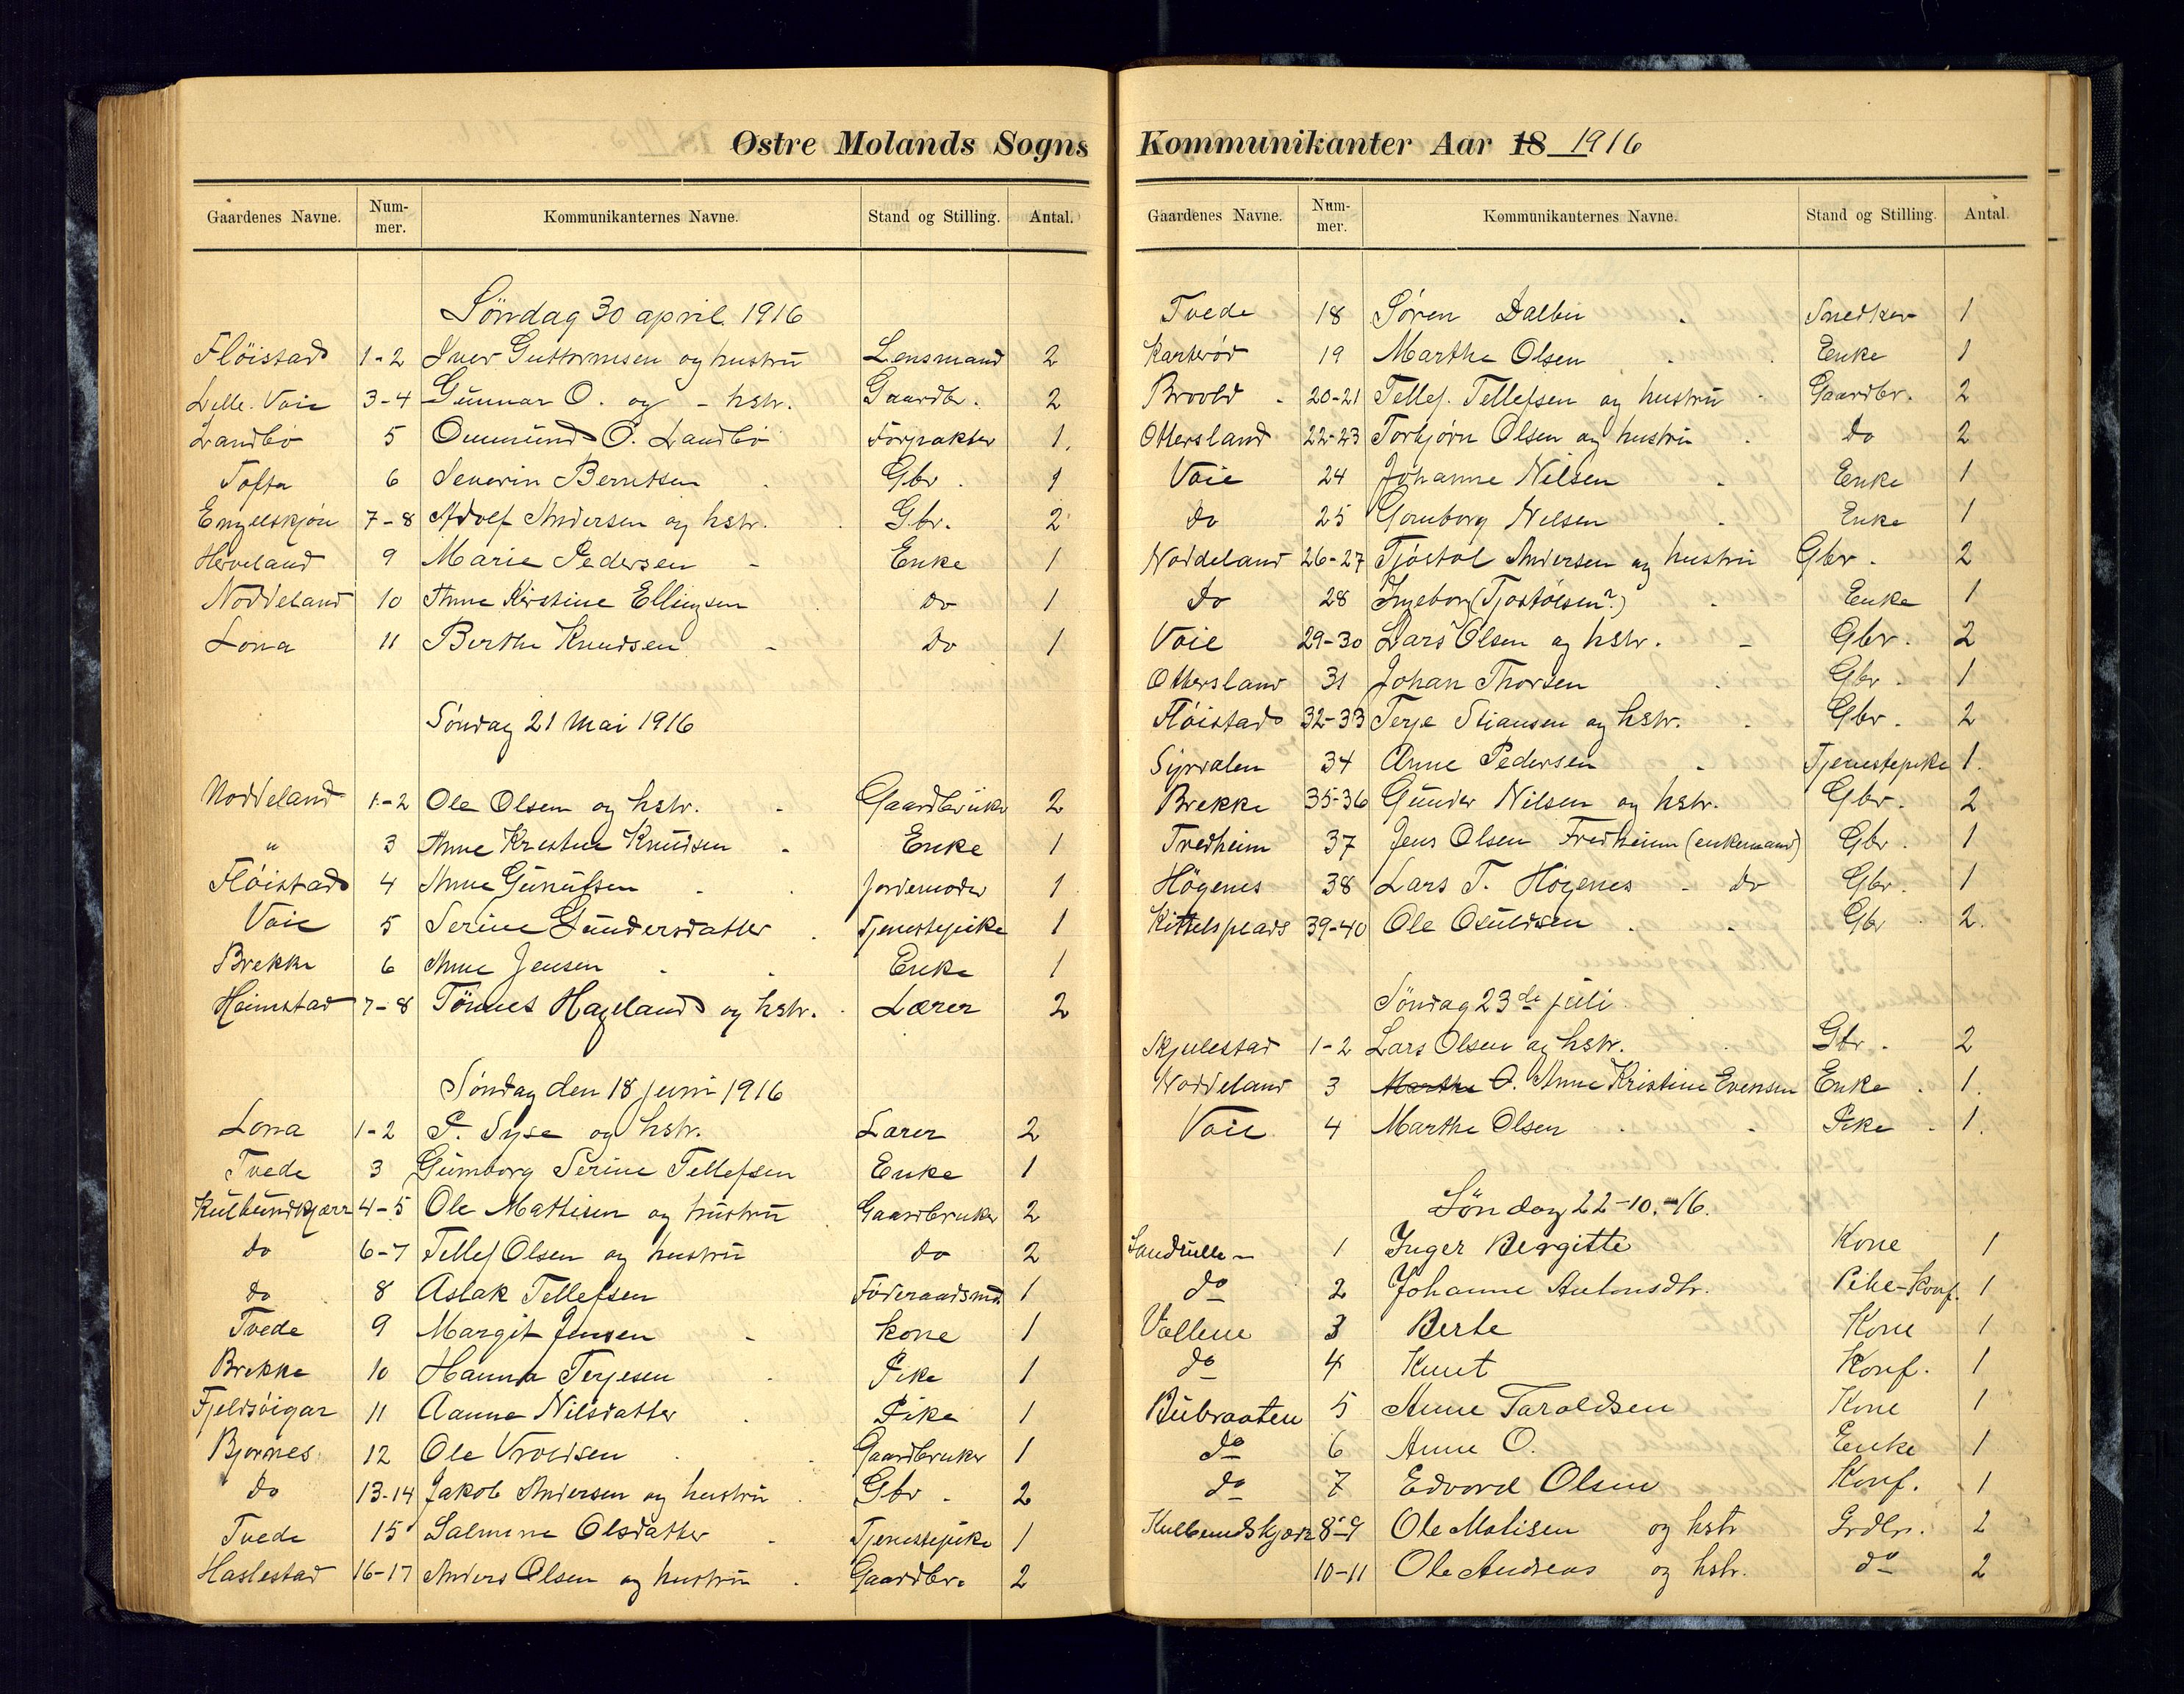 Østre Molands Sogns
Gaardenes Navne. Num-mer. Kommunikanternes Navne. Stand og Stilling. Antal.
Söndag 30 april 1916
Flöistad 1-2 Iver Guttormsen og hustru Lensmand 2
Lille Voie 3-4 Gunnar O. og - hstr. Gaardbr. 2
Landbö 5 Ommund O. Landbö Forpakter 1.
Tofta 6 Severin Berntsen Gbr. 1
Engelskjön 7-8 Adolf Andersen og hstr. Gbr. 2
Herveland 9 Marie Pedersen - Enke 1
Noddeland 10 Anne Kirstine Ellingsen do 1
Lona 11 Berthe Knudsen - do 1
Söndag 21 Mai 1916
Noddeland 1-2 Ole Olsen og hstr. - Gaardbruker 2
" 3 Anne Kristine Knudsen - Enke 1
Flöistad 4 Anne Gunufsen - Jordemoder 1
Voie 5 Serine Gundersdatter Tjenestepike 1
Brekke 6 Anne Jensen Enke 1
Heimstad 7-8 Tönnes Hageland og hstr. Lærer 2
Söndag den 18 juni 1916
Lona 1-2 P. Syse og hstr. Lærer 2
Tvede 3 Gumborg Serine Tellefsen Enke 1
Kulbundkjærr 4-5 Ole Mattisen og hustru Gaardbruker 2
do 6-7 Tellef Olsen og hustru do 2
do 8 Aslak Tellefsen Föderaadsmd. 1
Tvede 9 Margit Jensen - kone 1
Brekke 10 Hanna Terjesen Pike 1
Fjeldsöigar 11 Aanne Nilsdatter Pike 1
Bjornes 12 Ole Vroldsen Gaardbruker 1
do 13-14 Jakob Andersen og hustru Gbr. 2
Tvede 15 Salmine Olsdatter - Tjenestepike 1
Haslestad 16-17 Anders Olsen og hustru Gaardbr. 2
Kommunikanter Aar 18 1916
Gaardenes Navne. Num-mer. Kommunikanternes Navne. Stand og Stilling. Antal.
Tvede 18 Sören Dalbu Snedker 1
19 Marthe Olsen Enke 1
20-21 Tellef Tellefsen og hustru Gaardbr. 2
Ottersland 22-23 Torbjörn Olsen og hustru do 2
Voie 24 Johanne Nilsen Enke 1
do 25 Gomborg Nelsen Enke 1
Noddeland 26-27 Tjöstol Andersen og hustru Gbr. 2
do 28 Ingeborg (Tjostölsen?) Enke 1
Voie 29-30 Lars Olsen og hstr. - Gbr. 2
Ottersland 31 Johan Thorsen Gbr. 1
Flöistad 32-33 Terje Stiansen og hstr. Gbr. 2
34 Anne Pedersen - Tjenestepike 1.
Brekke 35-36 Gunder Nilsen og hstr. Gbr. 2
Fredheim 37 Jens Olsen Fredheim (enkemand) Gbr. 1
Högenes 38 Lars T. Högenes - do Gbr. 1
Kittelsplads 39-40 Ole Osuldsen Gbr 2.
Söndag 23de juli
Skjulestad 1-2 Lars Olsen og hstr. Gbr. 2
Noddeland 3 Marthe O. Anne Kristine Evensen Enke 1.
Voie 4 Marthe Olsen - Pike 1.
Söndag 22-10.-16.
1 Inger Bergitte Kone 1
do 2 Johanne Antonsdtr. Pike-Konf. 1
Vollene 3 Berte Kone 1
do 4 Knut Konf. 1
Bubraaten 5 Anne Taraldsen Kone 1
do 6 Anne O. Enke 1
do 7 Edvard Olsen Konf. 1
Kulbundskjærr 8-9 Ole Matisen og hstr Grdbr. 2
10-11 Ole Andreas og hstr. do 2